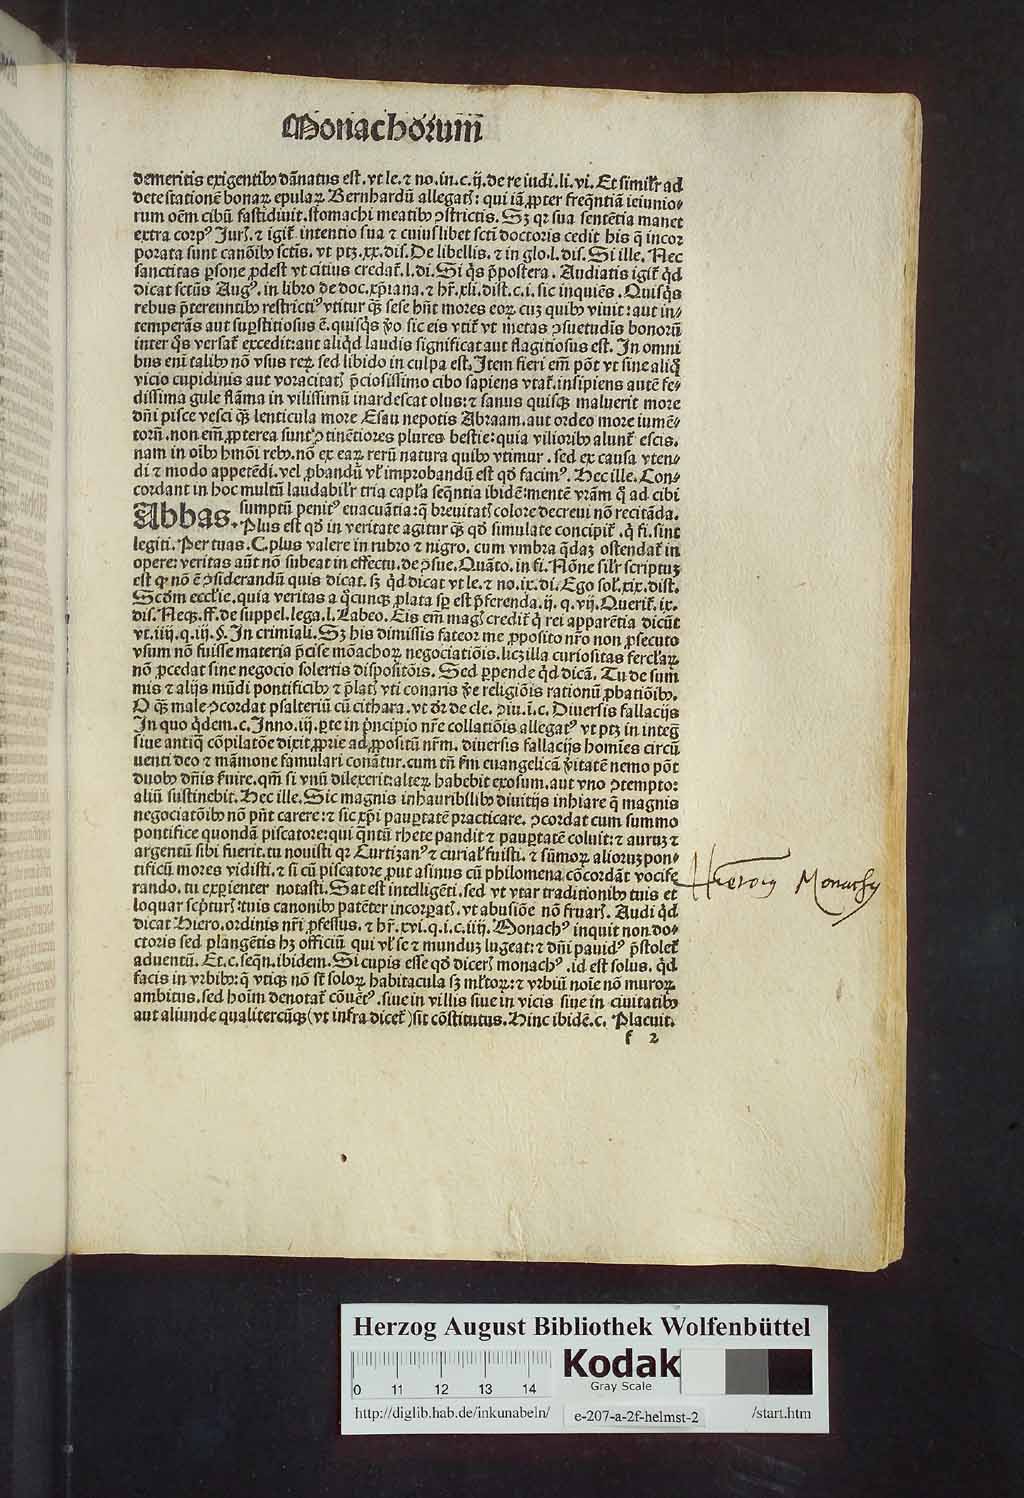 Monachorum
demeritis exigentibꝰ dãnatus est. vt le. ⁊ no. in. c. ij. de re iudi. li. vi. Et similr̃ ad
detestationẽ bonaꝝ epulaꝝ Bernhardũ allegatꝭ: qui iã ꝓpter freq̃ntiã ieiunio-
rum oẽm cibũ fastidiuit. stomachi meatibꝰ ꝯstrictis. Sꝫ qꝛ sua sentẽtia manet
extra corpꝰ Jurꝭ. ⁊ igit̃ intentio sua ⁊ cuiuslibet sctĩ doctoris cedit his q̃ incor
porata sunt canõibꝰ sctĩs. vt ptꝫ. xx. dis. De libellis. ⁊ in glo. l. dis. Si ille. Nec
sanctitas ꝑsone ꝓdest vt citius credat̃. l. di. Si q̃s p̃postera. Audiatis igit̃ qd̃
dicat sctũs Augꝰ. in libro de doc. xp̃iana. ⁊ hr̃. xli. dist. c. i. sic inquiẽs. Quisq̃s
rebus p̃tereuntibꝰ restrictiꝰ vtitur qꝫ sese hñt mores eoꝝ cuꝫ quibꝰ viuit: aut in-
temperãs aut suꝑstitiosus ẽ. quisq̃s ṽo sic eis vtit̃ vt metas ꝯsuetudĩs bonorũ
inter q̃s versat̃ excedit: aut aliqd̃ laudis significat aut flagitiosus est. In omni
bus enĩ talibꝰ nõ vsus reꝝ sed libido in culpa est. Item fieri em̃ põt vt sine aliq̃
vicio cupidinis aut voracitatꝭ p̃ciosissimo cibo sapiens vtat̃. insipiens autẽ fe-
dissima gule flãma in vilissimũ inardescat olus: ⁊ sanus quisqꝫ maluerit more
dñi pisce vesci qꝫ lenticula more Esau nepotis Abraam. aut ordeo more iumẽ-
torũ. non em̃ ꝓpterea sunt ꝯtinẽtiores plures bestie: quia vilioribꝰ alunt̃ escis.
nam in oĩbꝰ hmõi rebꝰ. nõ ex eaꝝ rerũ natura quibꝰ vtimur. sed ex causa vten-
di ⁊ modo appetẽdi. vel ꝓbandũ vl̃ improbandũ est qd̃ facimꝰ. Hec ille. Con-
cordant in hoc multũ laudabilr̃ tria capl̃a seq̃ntia ibidẽ: mentẽ vr̃am q̃ ad cibi
sumptũ penitꝰ euacuãtia: q̃ breuitatꝭ colore decreui nõ recitãda.
Abbas. Plus est qd̃ in veritate agitur qꝫ qd̃ simulate concipit̃. q̃ fi. sint
legiti. Per tuas. C. plus valere in rubro ⁊ nigro. cum vmbra q̃daꝫ ostendat̃ in
opere: veritas aũt nõ subeat in effectu. de ꝯsue. Quãto. in fi. Nõne silr̃ scriptuꝫ
est qꝙ nõ ẽ ꝯsiderandũ quis dicat. sꝫ qd̃ dicat vt le. ⁊ no. ix. di. Ego sol̃. xix. dist.
Scdm̃ eccl̃ie. quia veritas a q̃cunqꝫ ꝓlata sꝑ est p̃ferenda. ij. q. vij. Querit̃. ix.
dis. Neqꝫ. ff. de suppel. lega. l. Labeo. Eis em̃ magꝭ credit̃ q̃ rei apparẽtia dicũt
vt. iiij. q. iij. §. In crimĩali. Sꝫ his dimissis fateoꝛ me ꝓposito nr̃o non ꝓsecuto
vsum nõ fuisse materia p̃cise mõachoꝝ negociatiõis. licꝫ illa curiositas fercl̃aꝝ
nõ ꝓcedat sine negocio solertis dispositõis. Sed ꝑpende qd̃ dicã. Tu de sum
mis ⁊ alijs mũdi pontificibꝰ ⁊ p̃latꝭ vti conaris ṽe religiõis rationũ ꝓbatiõibꝰ.
O qꝫ male ꝯcordat psalteriũ cũ cithara. vt dꝛ de cle. ꝯiu. ĩ. c. Diuersis fallacijs
In quo q̃dem. c. Inno. iij. ꝑte in p̃ncipio nr̃e collatiõis allegatꝰ vt ptꝫ in integ̃
siue antiq̃ cõpilatõe dixit ꝓprie ad ꝓpositũ nr̃m. diuersis fallacijs homĩes circũ
uenti deo ⁊ mãmone famulari conãtur. cum tñ fm̃ euangelicã ṽitatẽ nemo põt
duobꝰ dñis ẜuire. qm̃ si vnũ dilexerit: alteꝝ habebit exosum. aut vno ꝯtempto:
aliũ sustinebit. Hec ille. Sic magnis inhauribĩlibꝰ diuitijs inhiare q̃ magnis
negociatõibꝰ nõ pñt carere: ⁊ sic xp̃i pauꝑtatẽ practicare. ꝯcordat cum summo
pontifice quondã piscatore: qui q̃ntũ rhete pandit ⁊ pauꝑtatẽ coluit: ⁊ auruꝫ ⁊
argentũ sibi fuerit. tu nouisti qꝛ Curtizanꝰ ⁊ curial̃ fuisti. ⁊ sũmoꝝ alioruꝫ pon-
tificũ mores vidisti. ⁊ si cũ piscatore ꝓut asinus cũ philomena cõcordãt vocife
rando. tu exꝑienter notasti. Sat est intelligẽti. sed vt vtar traditionibꝰ tuis et
loquar scp̃turꝭ: tuis canonibꝰ patẽter incorꝑatꝭ. vt abusiõe nõ fruarꝭ. Audi qd̃
dicat Hiero. ordinis nr̃i ꝓfessus. ⁊ hr̃. xvi. q. i. c. iiij. Monachꝰ inquit non do-
ctoris sed plangẽtis hꝫ officiũ qui vl̃ se ⁊ munduꝫ lugeat: ⁊ dñi pauidꝰ p̃stolet̃
aduentũ. Et. c. seqñ. ibidem. Si cupis esse qd̃ dicerꝭ monachꝰ. id est solus. qd̃
facis in vrbibꝰ: q̃ vtiqꝫ nõ st̃ soloꝝ habitacula sꝫ ml̃toꝝ: ⁊ vrbiũ noĩe nõ muroꝝ
ambitus. sed hoĩm denotat̃ cõuẽtꝰ. siue in villis siue in vicis siue in ciuitatibꝰ
aut aliunde qualitercũqꝫ (vt infra dicet̃) sit cõstitutus. Hinc ibidẽ. c. Placuit.
f 2
Monachꝰ
Herzog August Bibliothek Wolfenbüttel
Kodak
Gray Scale
0 11 12 13 14
http://diglib.hab.de/inkunabeln/ e-207-a-2f-helmst-2 /start.htm